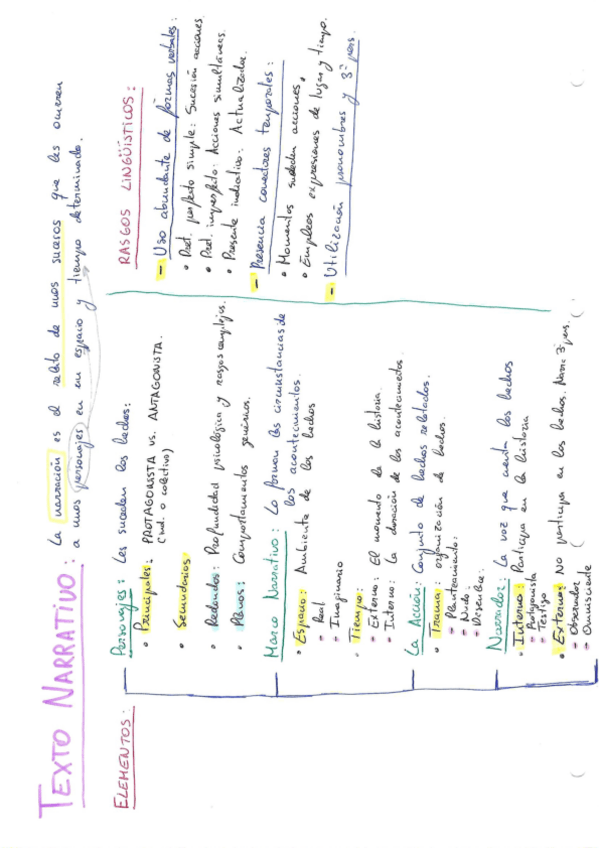 TEXTO NARRATIVO: La narración es el relato de unos sucesos que les ocurren
a unos personajes en un espacio y tiempo determinado.
ELEMENTOS:
Personajes: Les suceden los hechos:
• Principales: PROTAGONISTA vs. ANTAGONISTA.
(ind. o colectivo)
• Secundarios
• Redondos: Profundidad psicológica y rasgos complejos.
• Planos: Comportamientos genéricos.
Marco Narrativo: Lo forman las circunstancias de
los acontecimientos.
• Espacio: Ambiente de los hechos
- Real
- Imaginario
• Tiempo:
- Externo: El momento de la historia.
- Interno: La duración de los acontecimientos.
La Acción: Conjunto de hechos relatados.
• Trama: organización de hechos.
- Planteamiento:
- Nudo:
- Desenlace:
Narrador: La voz que cuenta los hechos
• Interno: Participa en la historia
- Protagonista
- Testigo
• Externo: No participa en los hechos. Narra 3ª pers.
- Observador
- Omnisciente
RASGOS LINGÜÍSTICOS:
- Uso abundante de formas verbales:
• Pret. perfecto simple: Sucesión acciones.
• Pret. imperfecto: Acciones simultáneas.
• Presente indicativo: Actualizador.
- Presencia conectores temporales:
• Momentos suceden acciones.
• Empleos expresiones de lugar y tiempo.
- Utilización pronombres y 3ª pers.